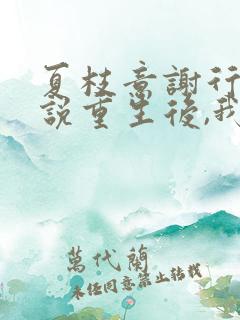 夏枝意謝行
說重生後,我
萬代蘭
未經同意禁止轉載